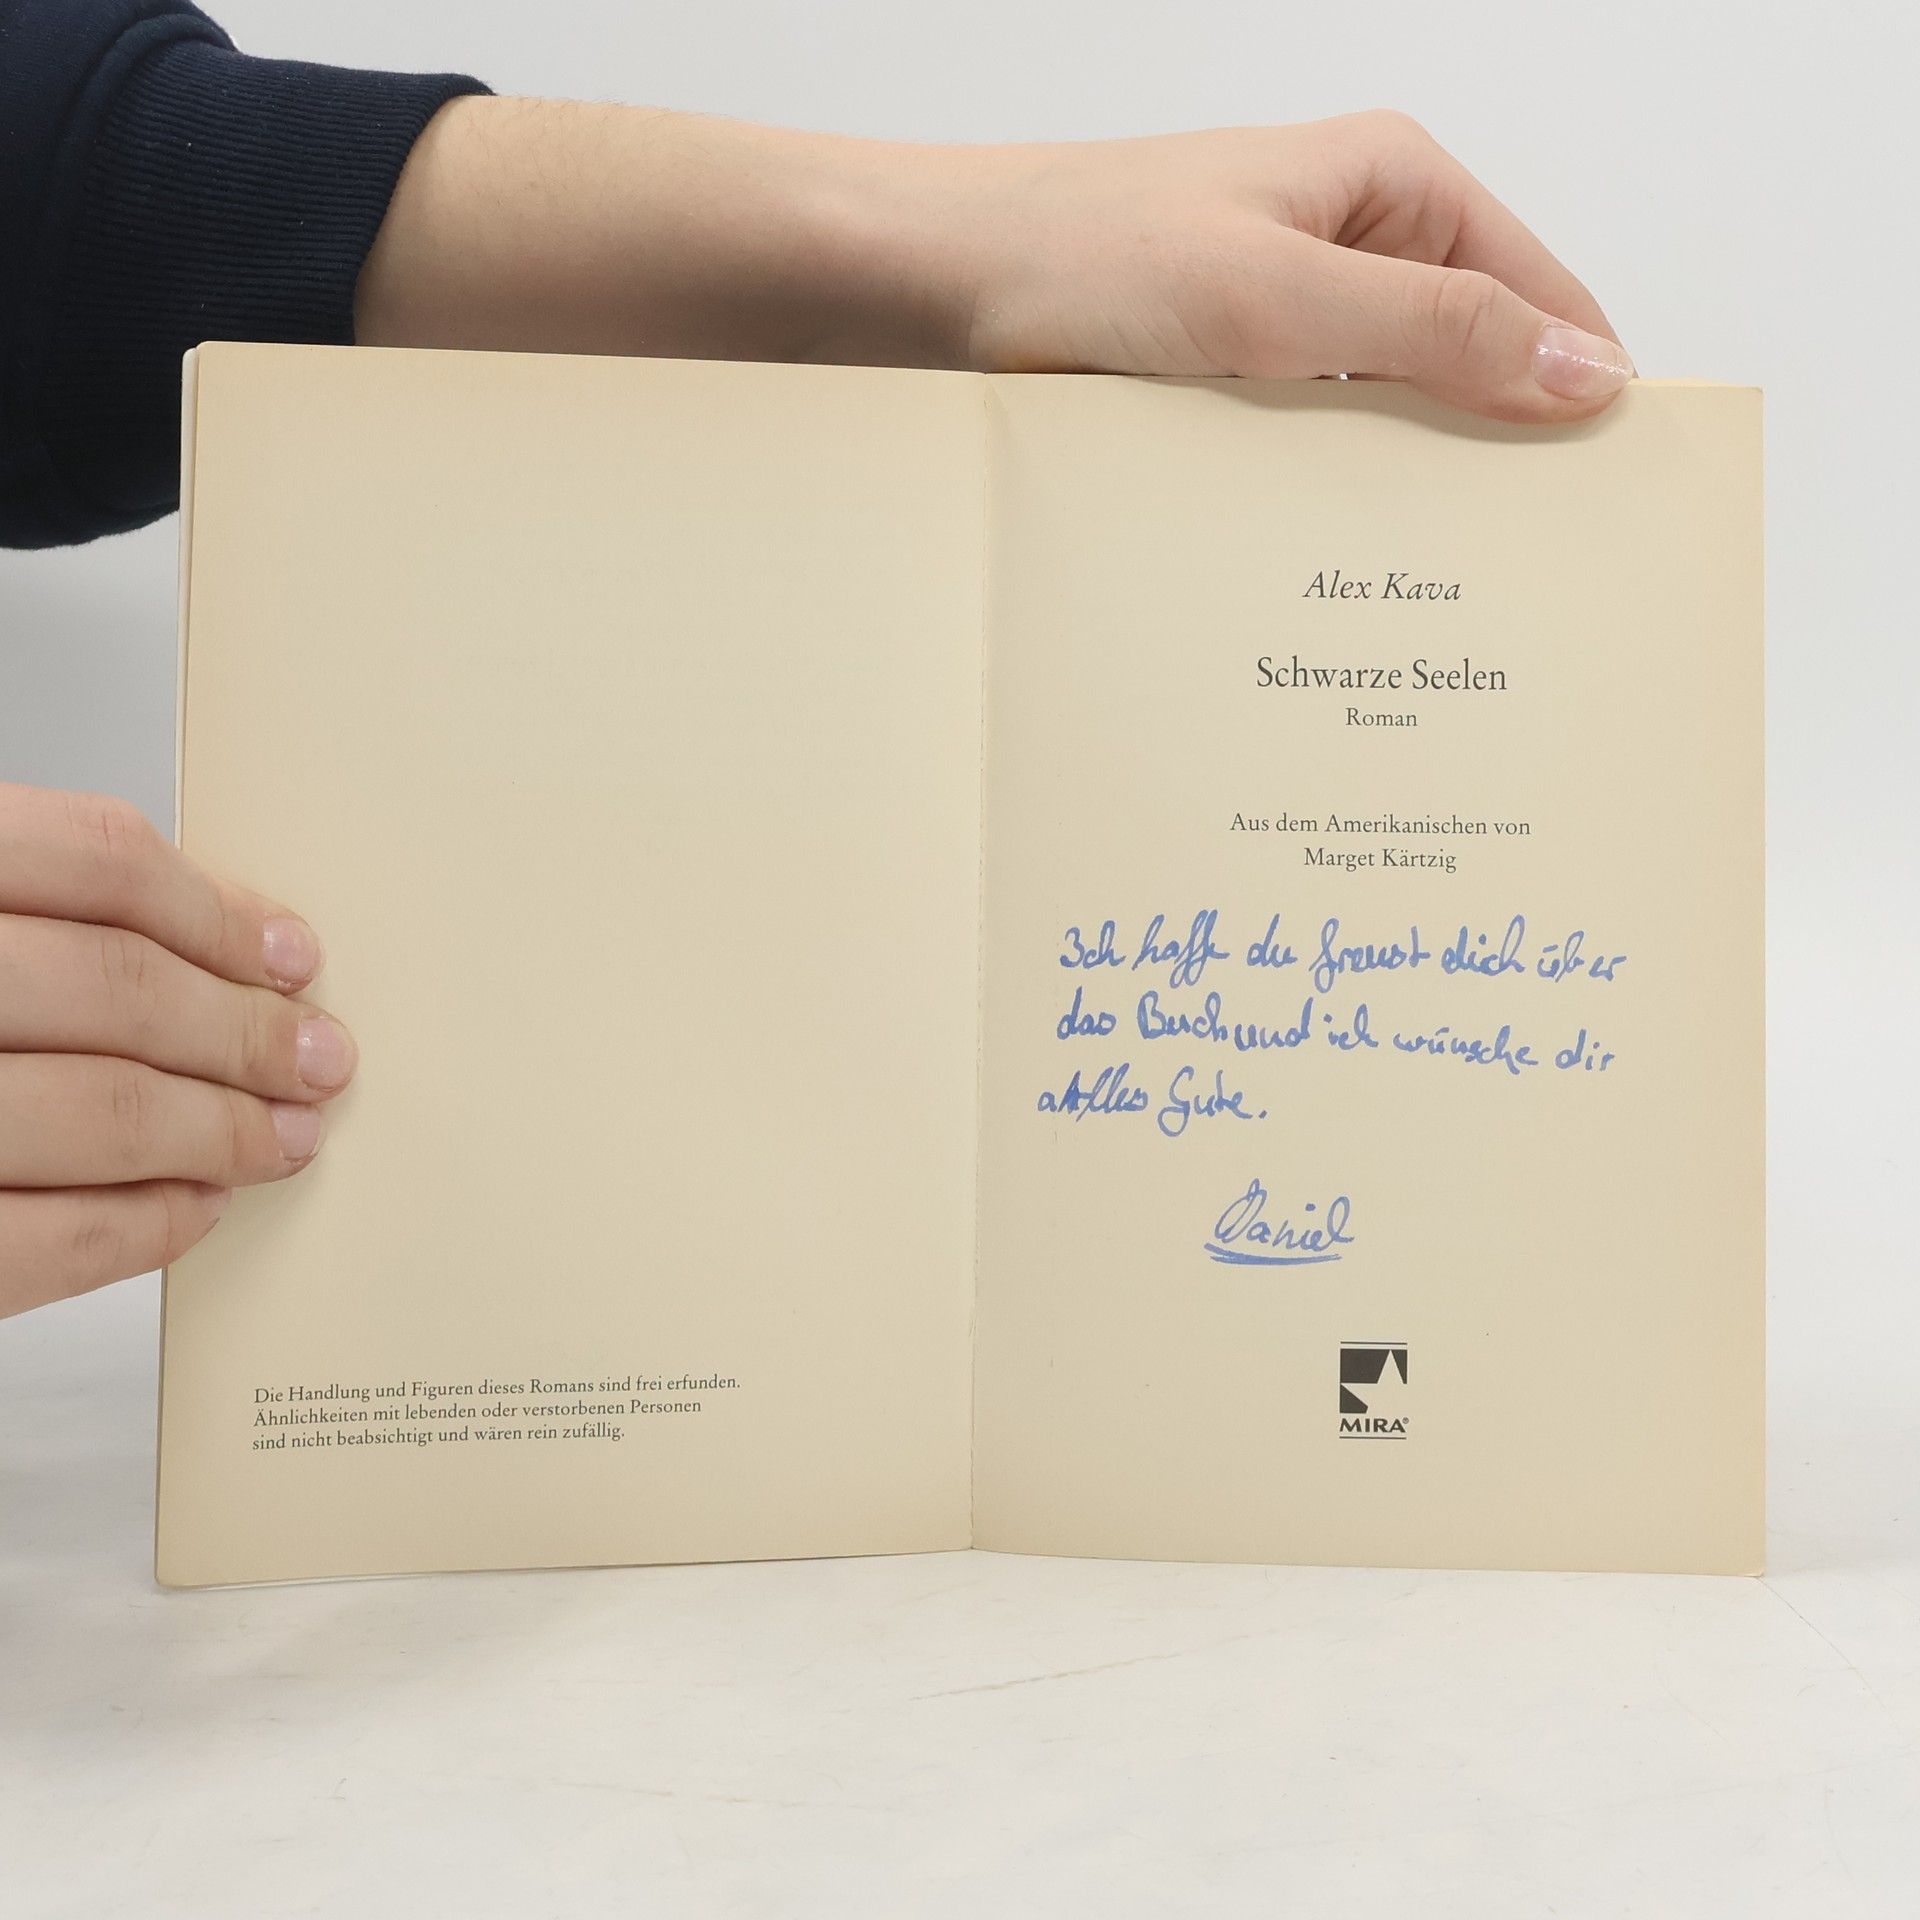 Die Handlung und Figuren dieses Romans sind frei erfunden.
Ähnlichkeiten mit lebenden oder verstorbenen Personen
sind nicht beabsichtigt und wären rein zufällig.
Alex Kava
Schwarze Seelen
Roman
Aus dem Amerikanischen von
Marget Kärtzig
Ich hoffe du freust dich über
das Buch und ich wünsche dir
alles Gute.
Daniel
MIRA®